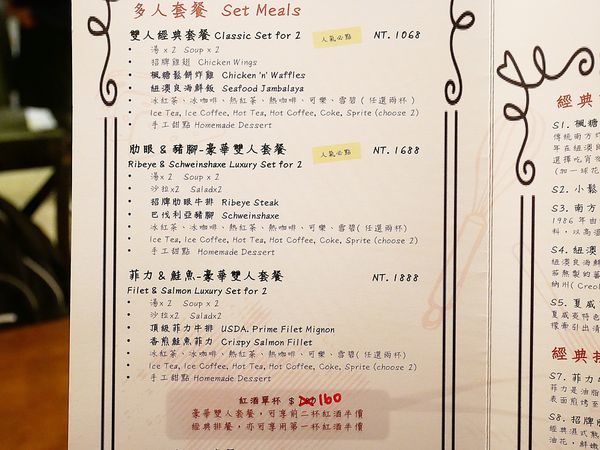 多人套餐 Set Meals
雙人經典套餐 Classic Set for 2 人氣必點 NT. 1068
• 湯 x 2 Soup x 2
• 招牌雞翅 Chicken Wings
• 楓糖鬆餅炸雞 Chicken 'n' Waffles
• 紐澳良海鮮飯 Seafood Jambalaya
• 冰紅茶、冰咖啡、熱紅茶、熱咖啡、可樂、雪碧 ( 任選兩杯 )
• Ice Tea, Ice Coffee, Hot Tea, Hot Coffee, Coke, Sprite (choose 2)
• 手工甜點 Homemade Dessert
肋眼 & 豬腳-豪華雙人套餐 人氣必點 NT. 1688
Ribeye & Schweinshaxe Luxury Set for 2
• 湯x 2 Soup x 2
• 沙拉x2 Saladx2
• 招牌肋眼牛排 Ribeye Steak
• 巴伐利亞豬腳 Schweinshaxe
• 冰紅茶、冰咖啡、熱紅茶、熱咖啡、可樂、雪碧( 任選兩杯)
• Ice Tea, Ice Coffee, Hot Tea, Hot Coffee, Coke, Sprite (choose 2)
• 手工甜點 Homemade Dessert
菲力 & 鮭魚-豪華雙人套餐 NT. 1888
Filet & Salmon Luxury Set for 2
• 湯x 2 Soup x 2
• 沙拉x2 Saladx2
• 頂級菲力牛排 USDA. Prime Filet Mignon
• 香煎鮭魚菲力 Crispy Salmon Fillet
• 冰紅茶、冰咖啡、熱紅茶、熱咖啡、可樂、雪碧( 任選兩杯)
• Ice Tea, Ice Coffee, Hot Tea, Hot Coffee, Coke, Sprite (choose 2)
• 手工甜點 Homemade Dessert
紅酒單杯 $ 160
豪華雙人套餐，可享前二杯紅酒半價
經典排餐，亦可享用第一杯紅酒半價
經典
S1. 楓糖
傳統南方炸
年在紐澳良
選擇吃宵夜
(加一球花
S2. 小鬆
S3. 南方
1986 年由
料，以高溫
S4. 紐澳
紐澳良海鮮
茄熬製的蕃
納州( Creol
S5. 夏威
夏威夷特色
檬牽引出清
經典排
S7. 菲力牛
菲力是油脂
表面煎烤至
S8. 招牌肋
經典濕式熟
油花，鮮嫩